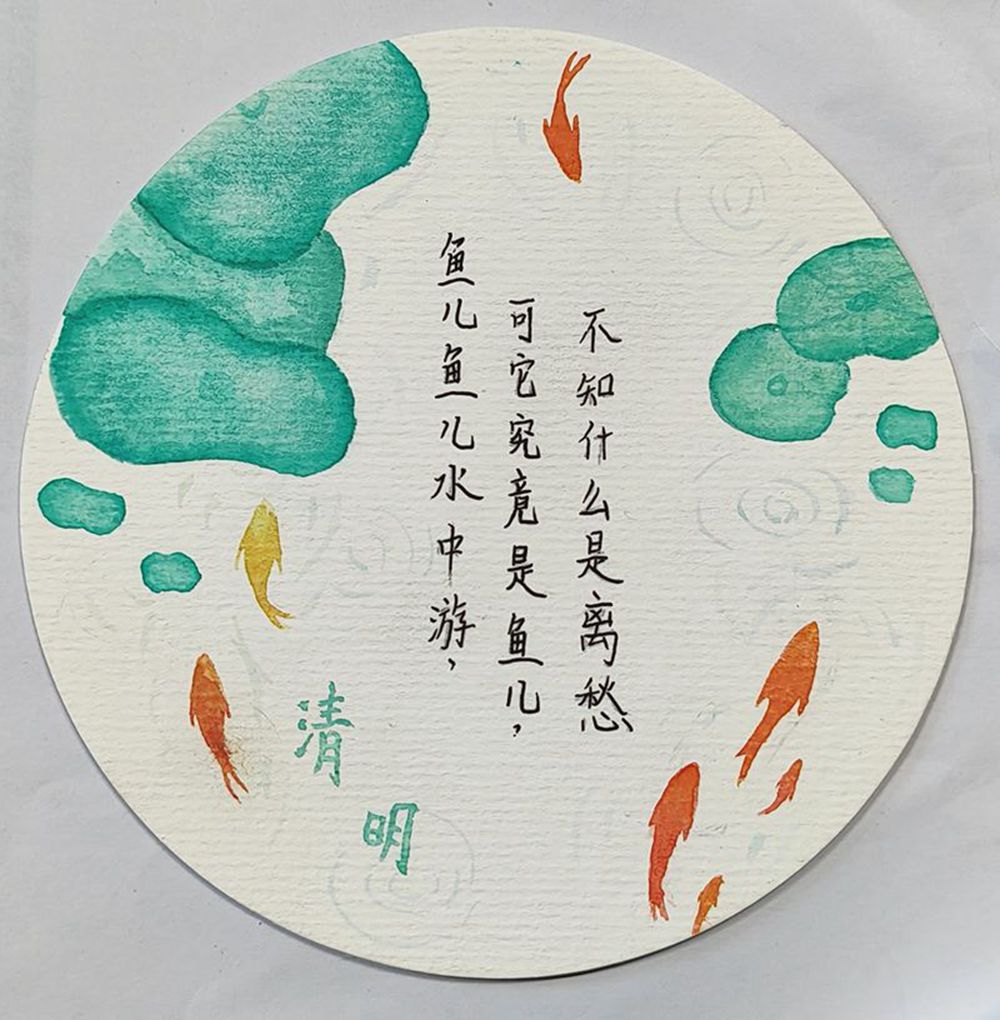 鱼儿鱼儿水中游，
可它究竟是鱼儿，
不知什么是离愁
清明